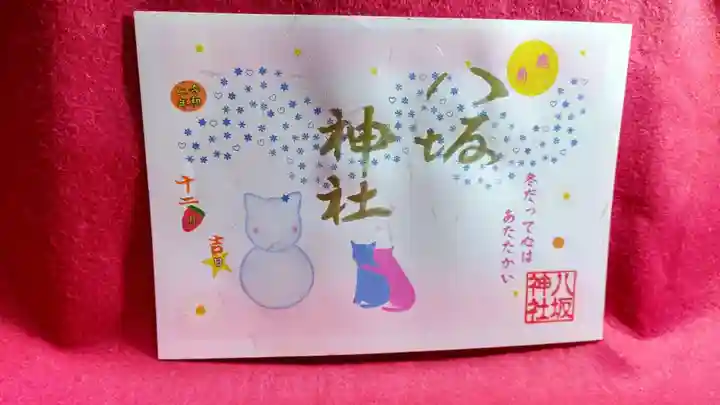 奉
拝
八坂
神社
冬だって心は
あたたかい
八坂
神社
令和
二年
十二月
吉日